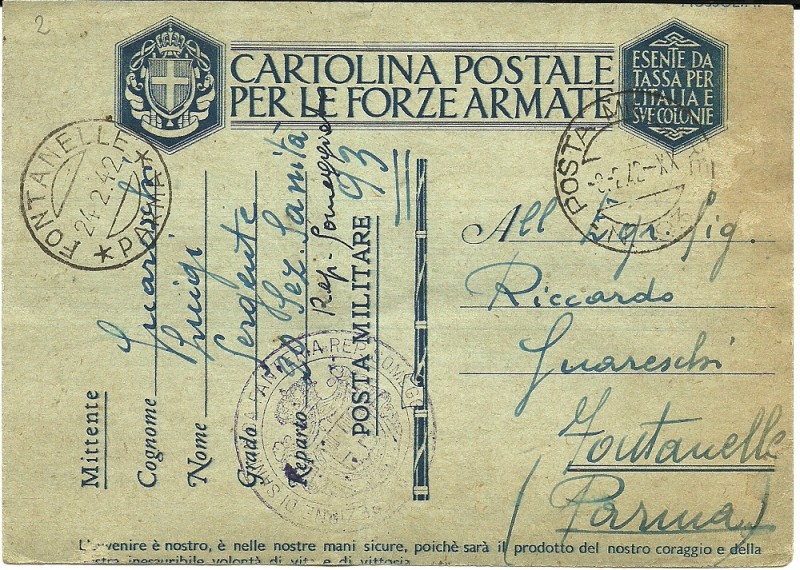 2
CARTOLINA POSTALE
PER LE FORZE ARMATE
ESENTE DA
TASSA PER
L'ITALIA E
SVE COLONIE
FONTANELLE * PARMA *
24.2.42
POSTA MILITARE
-8.2.42-XX
Mittente
Cognome Guareschi
Nome Luigi
Grado Sergente
Reparto Sez. Sanità
Rep. Someggiat
POSTA MILITARE 93
SEZIONE DI SANITA
All Egr. Sig.
Riccardo
Guareschi
Fontanelle
(Parma)
L'avvenire è nostro, è nelle nostre mani sicure, poichè sarà il prodotto del nostro coraggio e della
nostra inesauribile volontà di vita e di vittoria